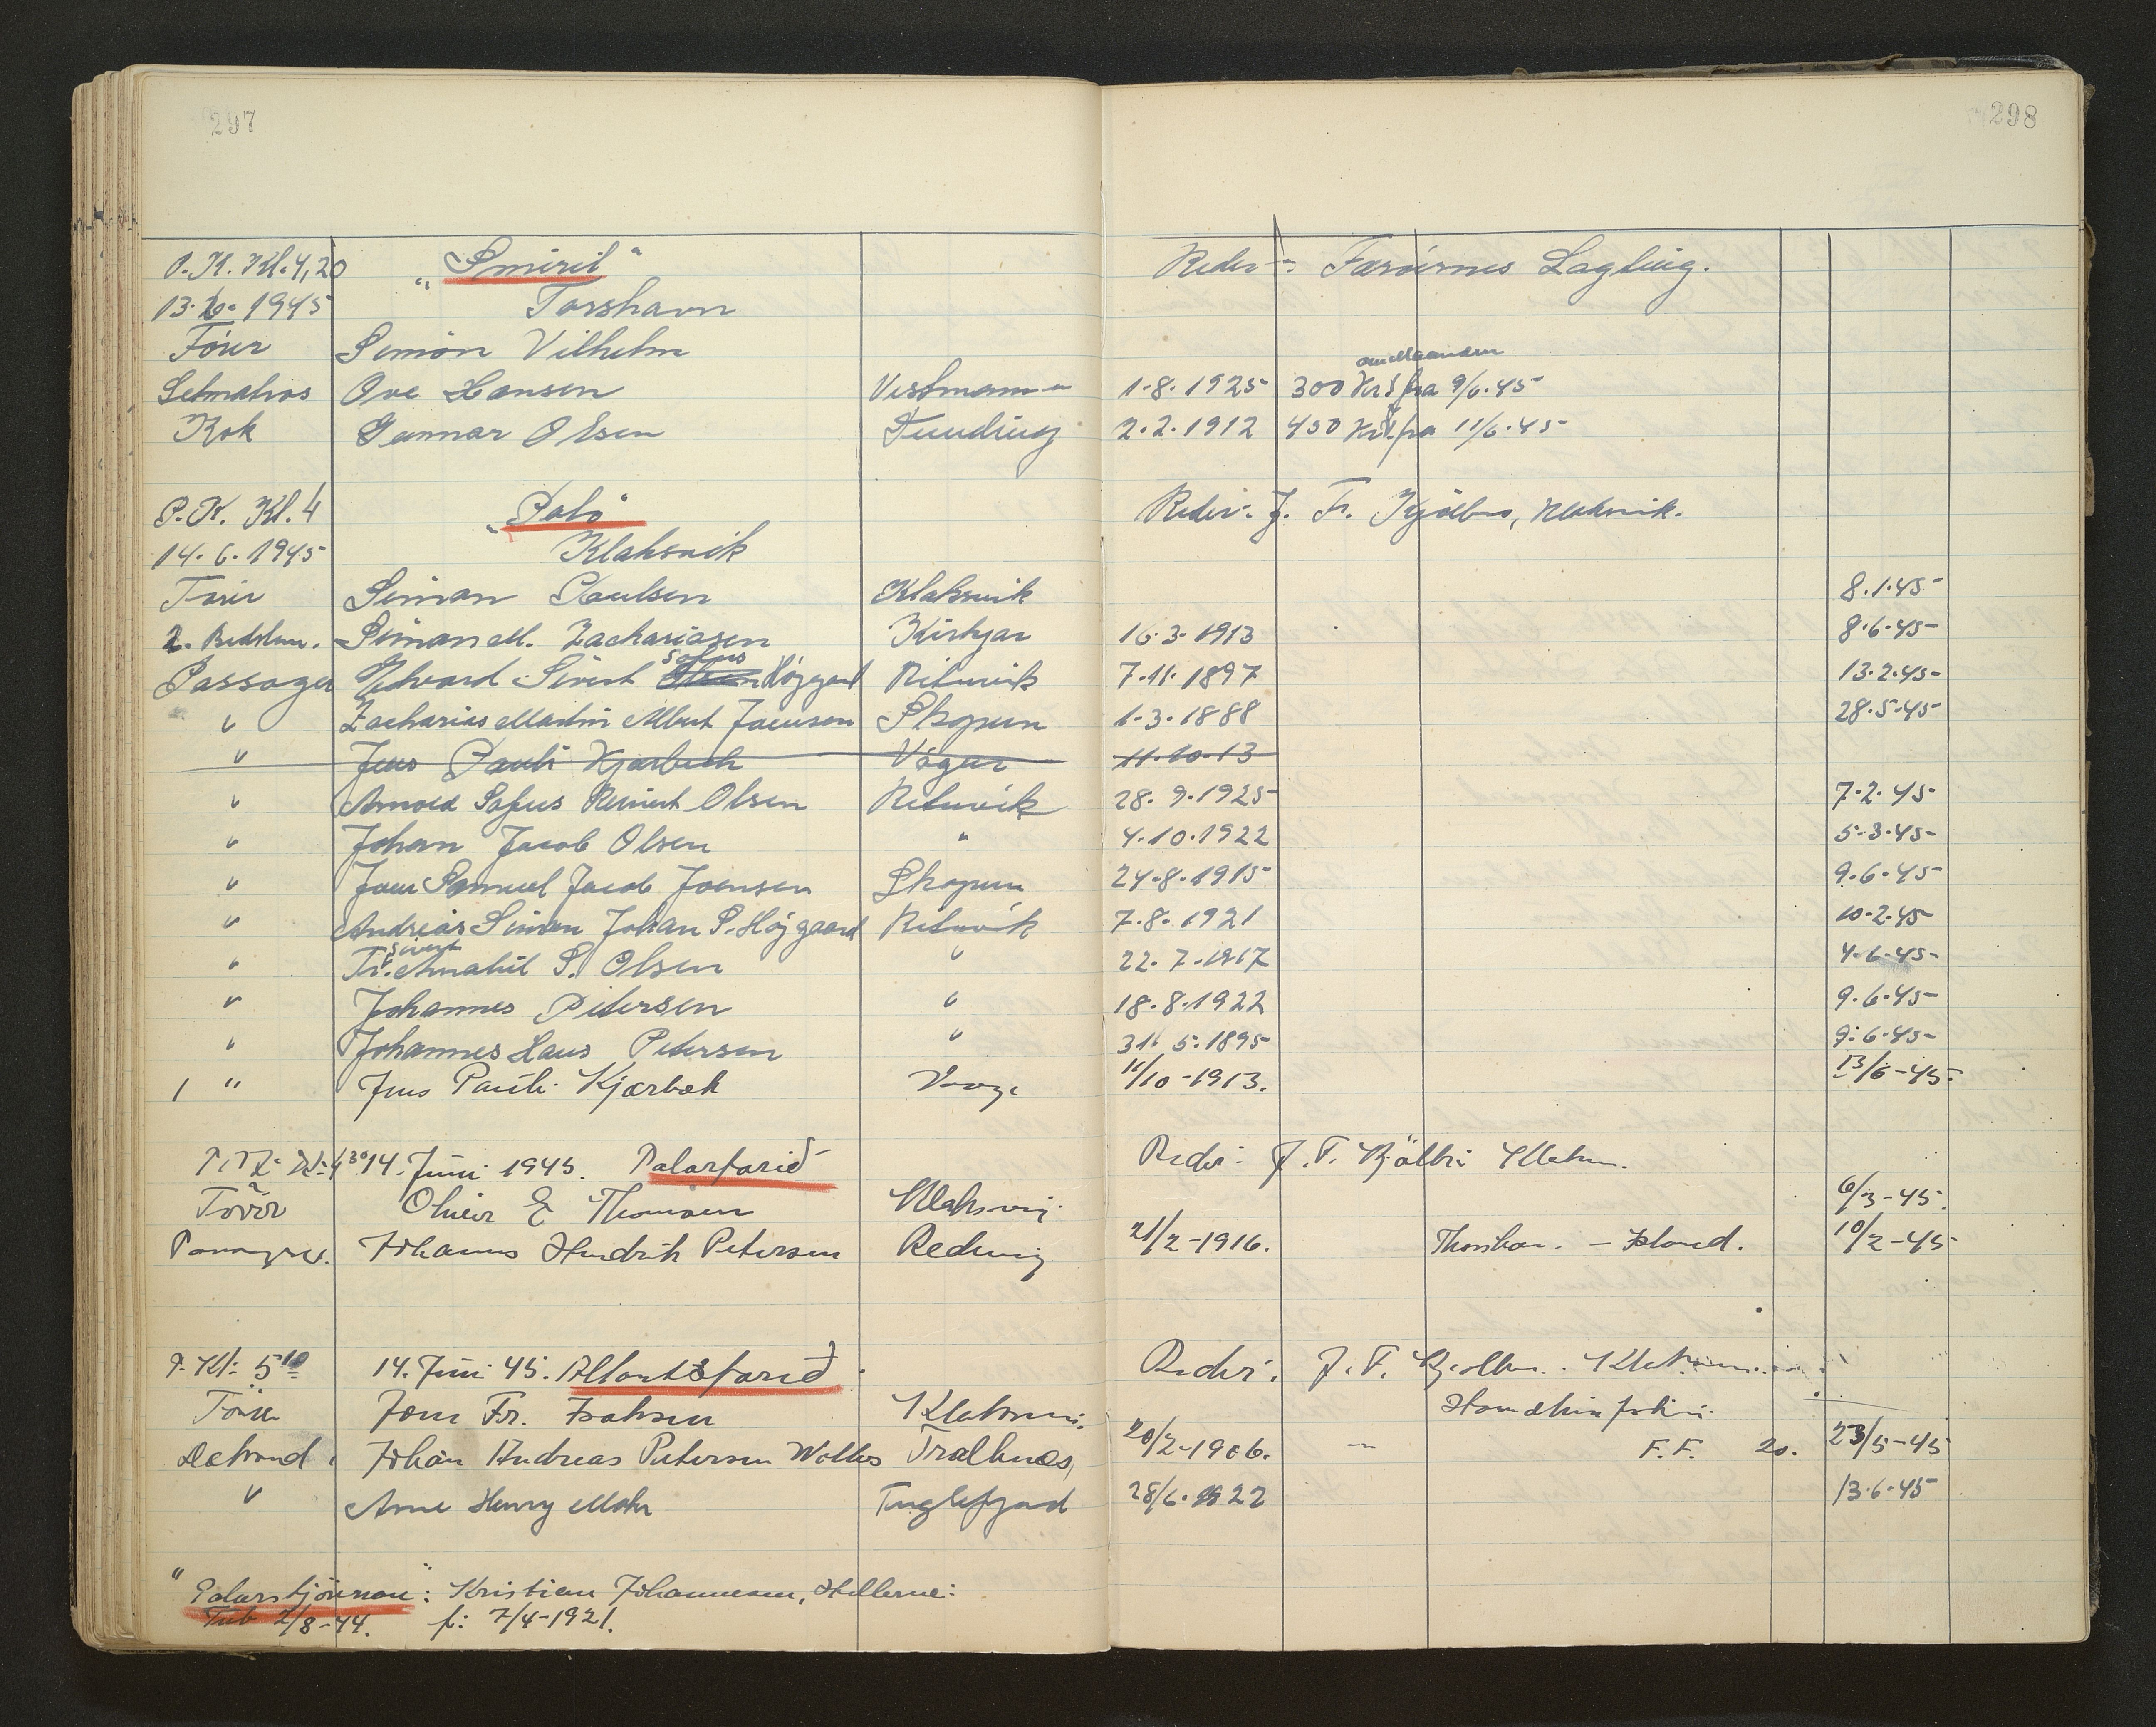 297 298
P.K. Kl. 4,20 "Smiril" Rederi: Færøernes Lagting.
13.6.1945 Torshavn
Fører Simon Vilhelm
om Maaneden
Letmatros Ove Hansen Vestmann " 1.8.1925 300 Kr. fra 9/6.45
Kok Gunnar Olsen Funding 2.2.1912 450 Kr. fra 11/6.45
P.K. Kl. 4 "Polo" Rederi: J. Fr. Kjølbro, Klaksvik.
14.6.1945 Klaksvik
Fører Siman Poulsen Klaksvik 8.1.45
2. Bedstem. Siman M. Zachariasen Kirkjar 16.3.1913 8.6.45
Sofus
Passager Edvard Sivert Olsen Højgaard Rituvik 7.11.1897 13.2.45
" Zacharias Martin Albert Joensen Skopun 1.3.1888 28.5.45
" Jens Pauli Kjærbæk Vágur 11.10.13
" Arnold Sofus Reinert Olsen Rituvik 28.9.1925 7.2.45
" Johan Jacob Olsen " 4.10.1922 5.3.45
" Joen Samuel Jacob Joensen Skopun 24.8.1915 9.6.45
" Andreas Simon Johan P. Højgaard Rituvik 7.8.1921 10.2.45
Sivert
" Fr. Amaliel S. Olsen " 22.7.1917 4.6.45
" Johannes Petersen " 18.8.1922 9.6.45
" Johannes Hans Petersen " 31.5.1895 9.6.45
/ " Jens Pauli Kjærbæk Vaag 11/10-1913. 13/6-45.
Kl. 4 30 14. Juni 1945. Polarfarid Rederi: J.F. Kjölbro Klaksv.
Fører Oliver E Thomsen Klaksvig 6/3-45.
Passager. Johannes Hendrik Petersen Redevig 21/2-1916. Thorshavn. - Island. 10/2-45
P. Kl. 5 10 14. Juni 45. Atlantsfarid. Rederi: J.F. Kjølbro. Klaksvig
Fører Joen Fr. Isaksen Klaksvig.
Dekmand. Johan Andreas Petersen Trælnes, 20/2-1906. " F.F. 20. 23/5-45
" Arne Henry Mohr Fuglefjord 28/6.1922 13.6.45
"Polarstjørnan": Kristian Johannesen, Hellerne:
Tub 2/8-44. f: 7/4-1921.